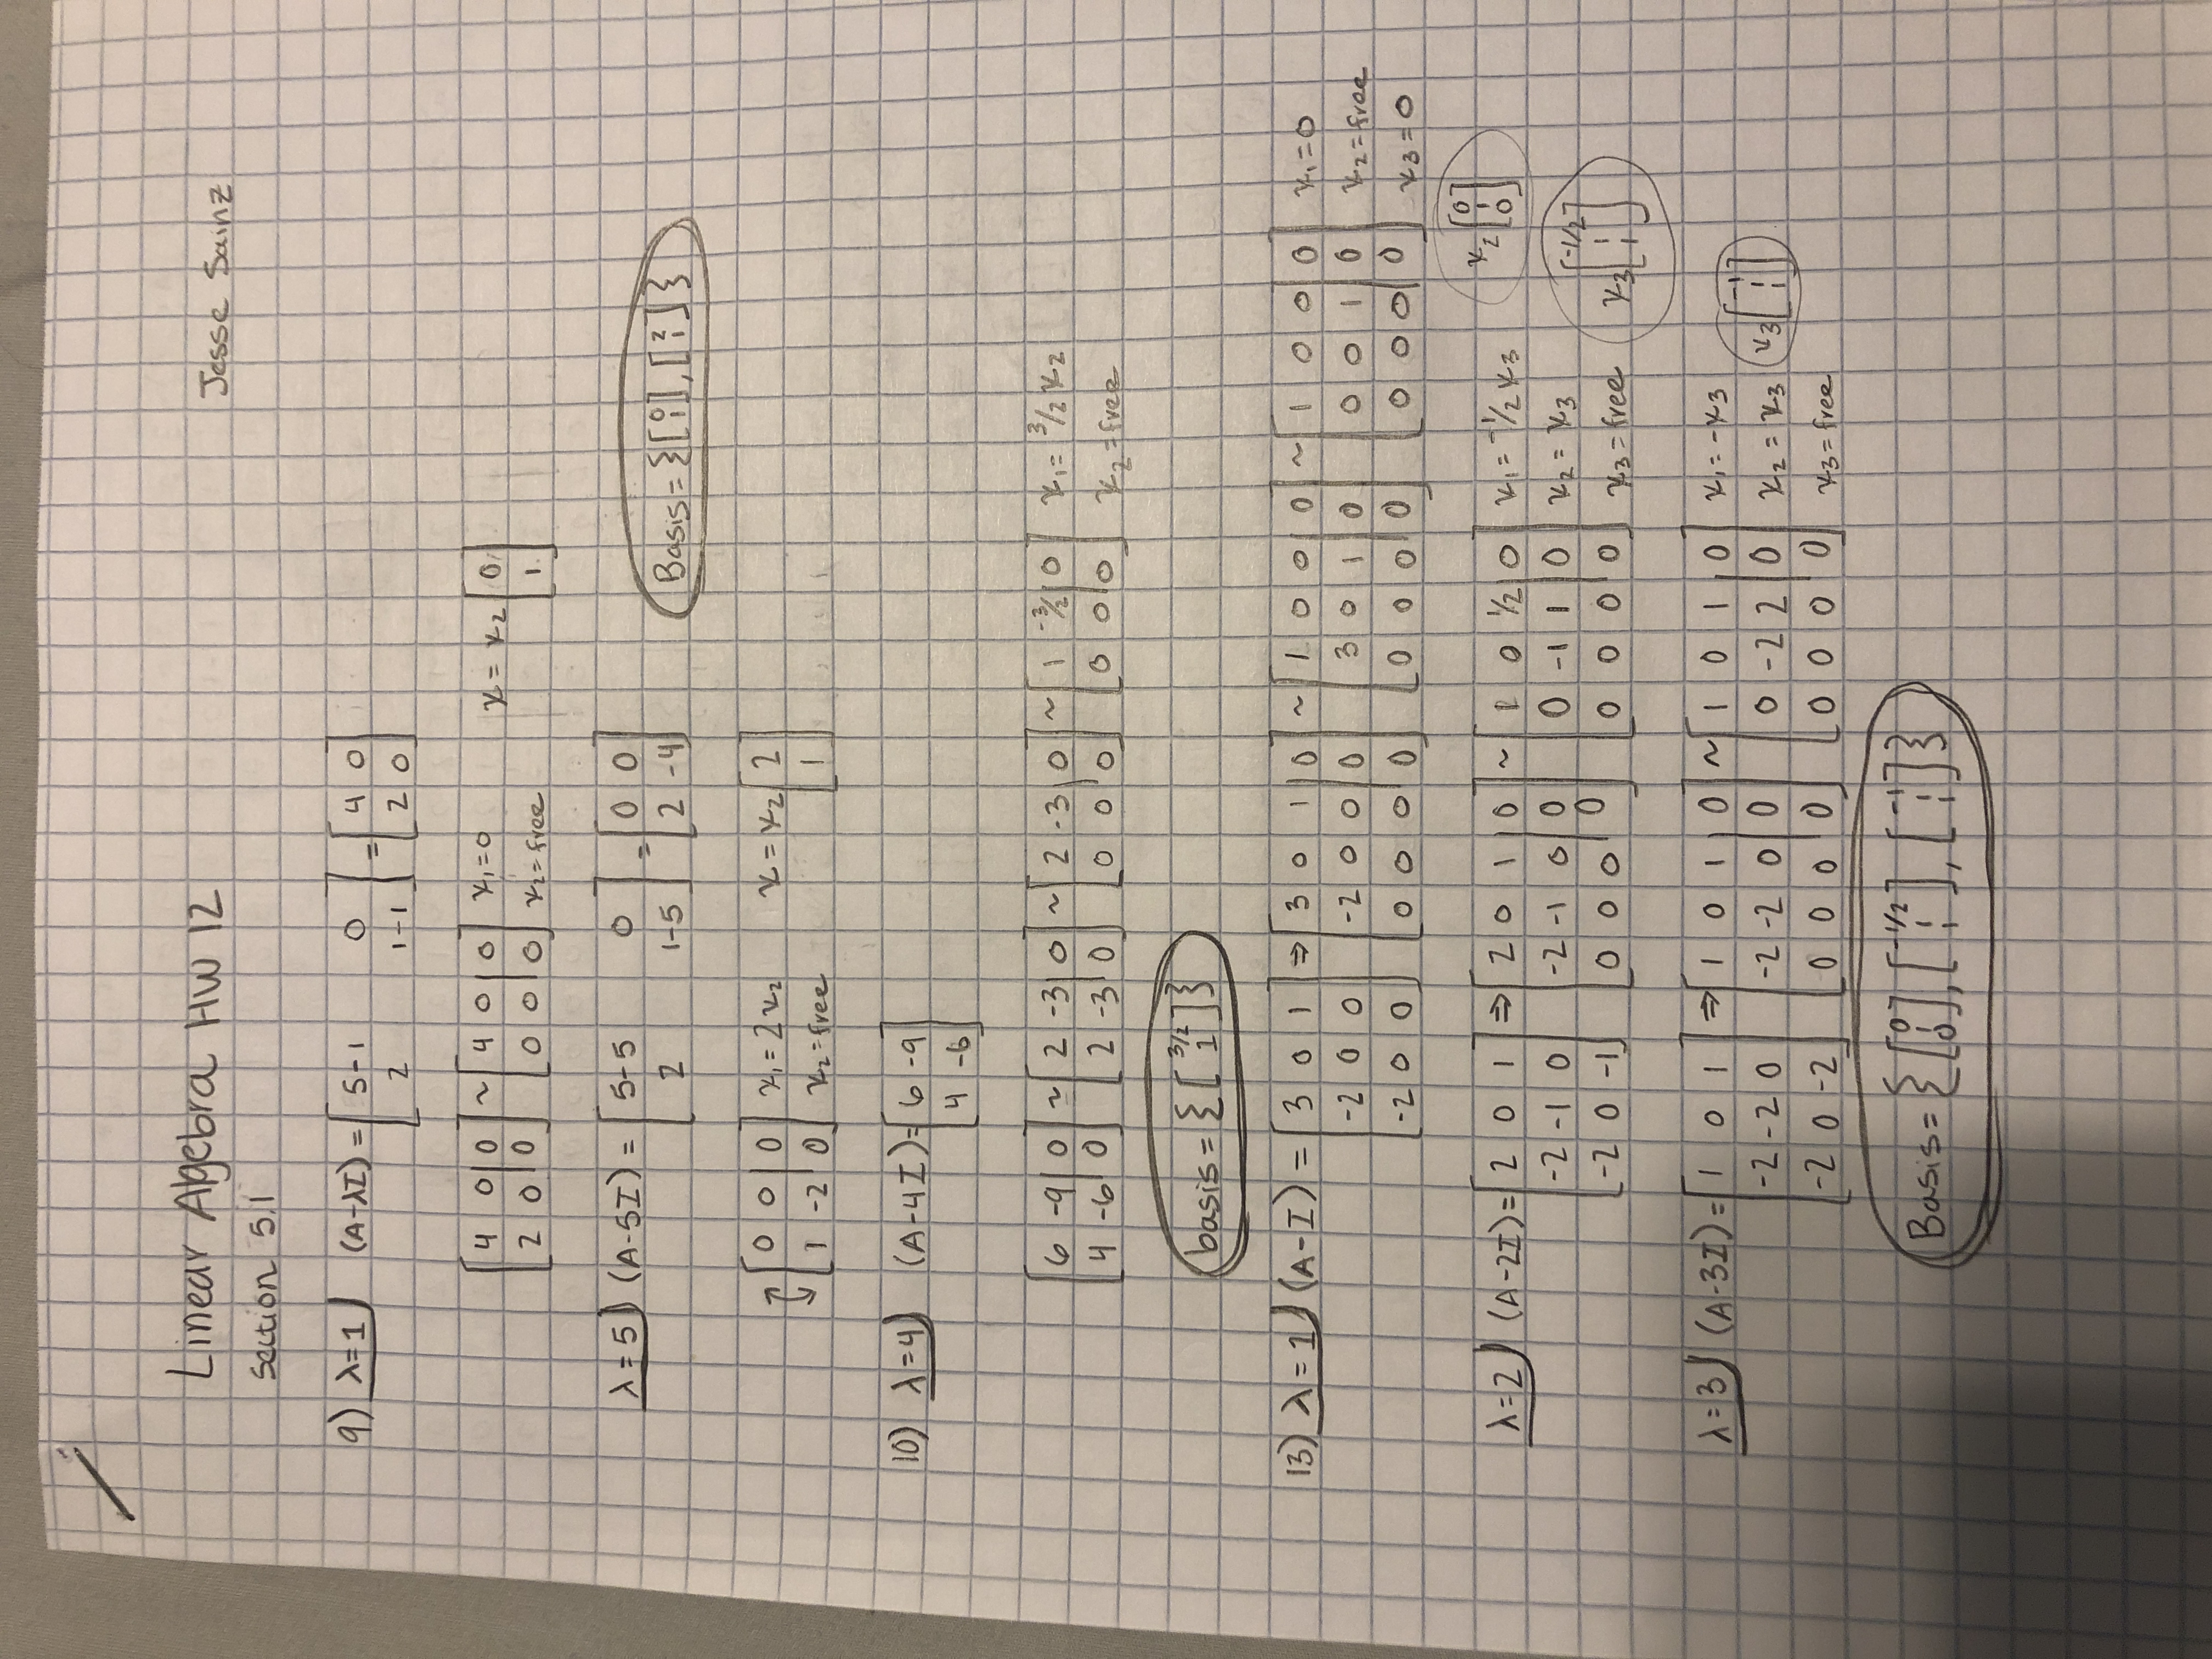 Linear Algebra HW 12
Jesse Sainz
Section 5.1
9) λ=1 (A-λI) = [5-1 0; 2 1-1] = [4 0; 2 0]
[4 0 | 0; 2 0 | 0] ~ [4 0 | 0; 0 0 | 0] x₁=0 x₂=free x = x₂ [0; 1]
λ=5) (A-5I) = [5-5 0; 2 1-5] = [0 0; 2 -4]
Basis = {[0; 1], [2; 1]}
[0 0 | 0; 1 -2 | 0] x₁=2x₂ x₂=free x = x₂ [2; 1]
10) λ=4) (A-4I) = [6 -9; 4 -6]
[6 -9 | 0; 4 -6 | 0] ~ [2 -3 | 0; 2 -3 | 0] ~ [2 -3 | 0; 0 0 | 0] ~ [1 -3/2 | 0; 0 0 | 0] x₁=3/2 x₂ x₂=free
basis = {[3/2; 1]}
13) λ=1) (A-I) = [3 0 1; -2 0 0; -2 0 0] ⇒ [3 0 1 | 0; -2 0 0 | 0; 0 0 0 | 0] ~ [1 0 0 | 0; 3 0 1 | 0; 0 0 0 | 0] ~ [1 0 0 | 0; 0 0 1 | 0; 0 0 0 | 0] x₁=0 x₂=free x₃=0
x₂ [0; 1; 0]
λ=2) (A-2I) = [2 0 1; -2 -1 0; -2 0 -1] ⇒ [2 0 1 | 0; -2 -1 0 | 0; 0 0 0 | 0] ~ [1 0 1/2 | 0; 0 -1 1 | 0; 0 0 0 | 0] x₁=-1/2 x₃ x₂=x₃ x₃=free x₃ [-1/2; 1; 1]
λ=3) (A-3I) = [1 0 1; -2 -2 0; -2 0 -2] ⇒ [1 0 1 | 0; -2 -2 0 | 0; 0 0 0 | 0] ~ [1 0 1 | 0; 0 -2 2 | 0; 0 0 0 | 0] x₁=-x₃ x₂=x₃ x₃=free x₃ [-1; 1; 1]
Basis = {[0; 1; 0], [-1/2; 1; 1], [-1; 1; 1]}